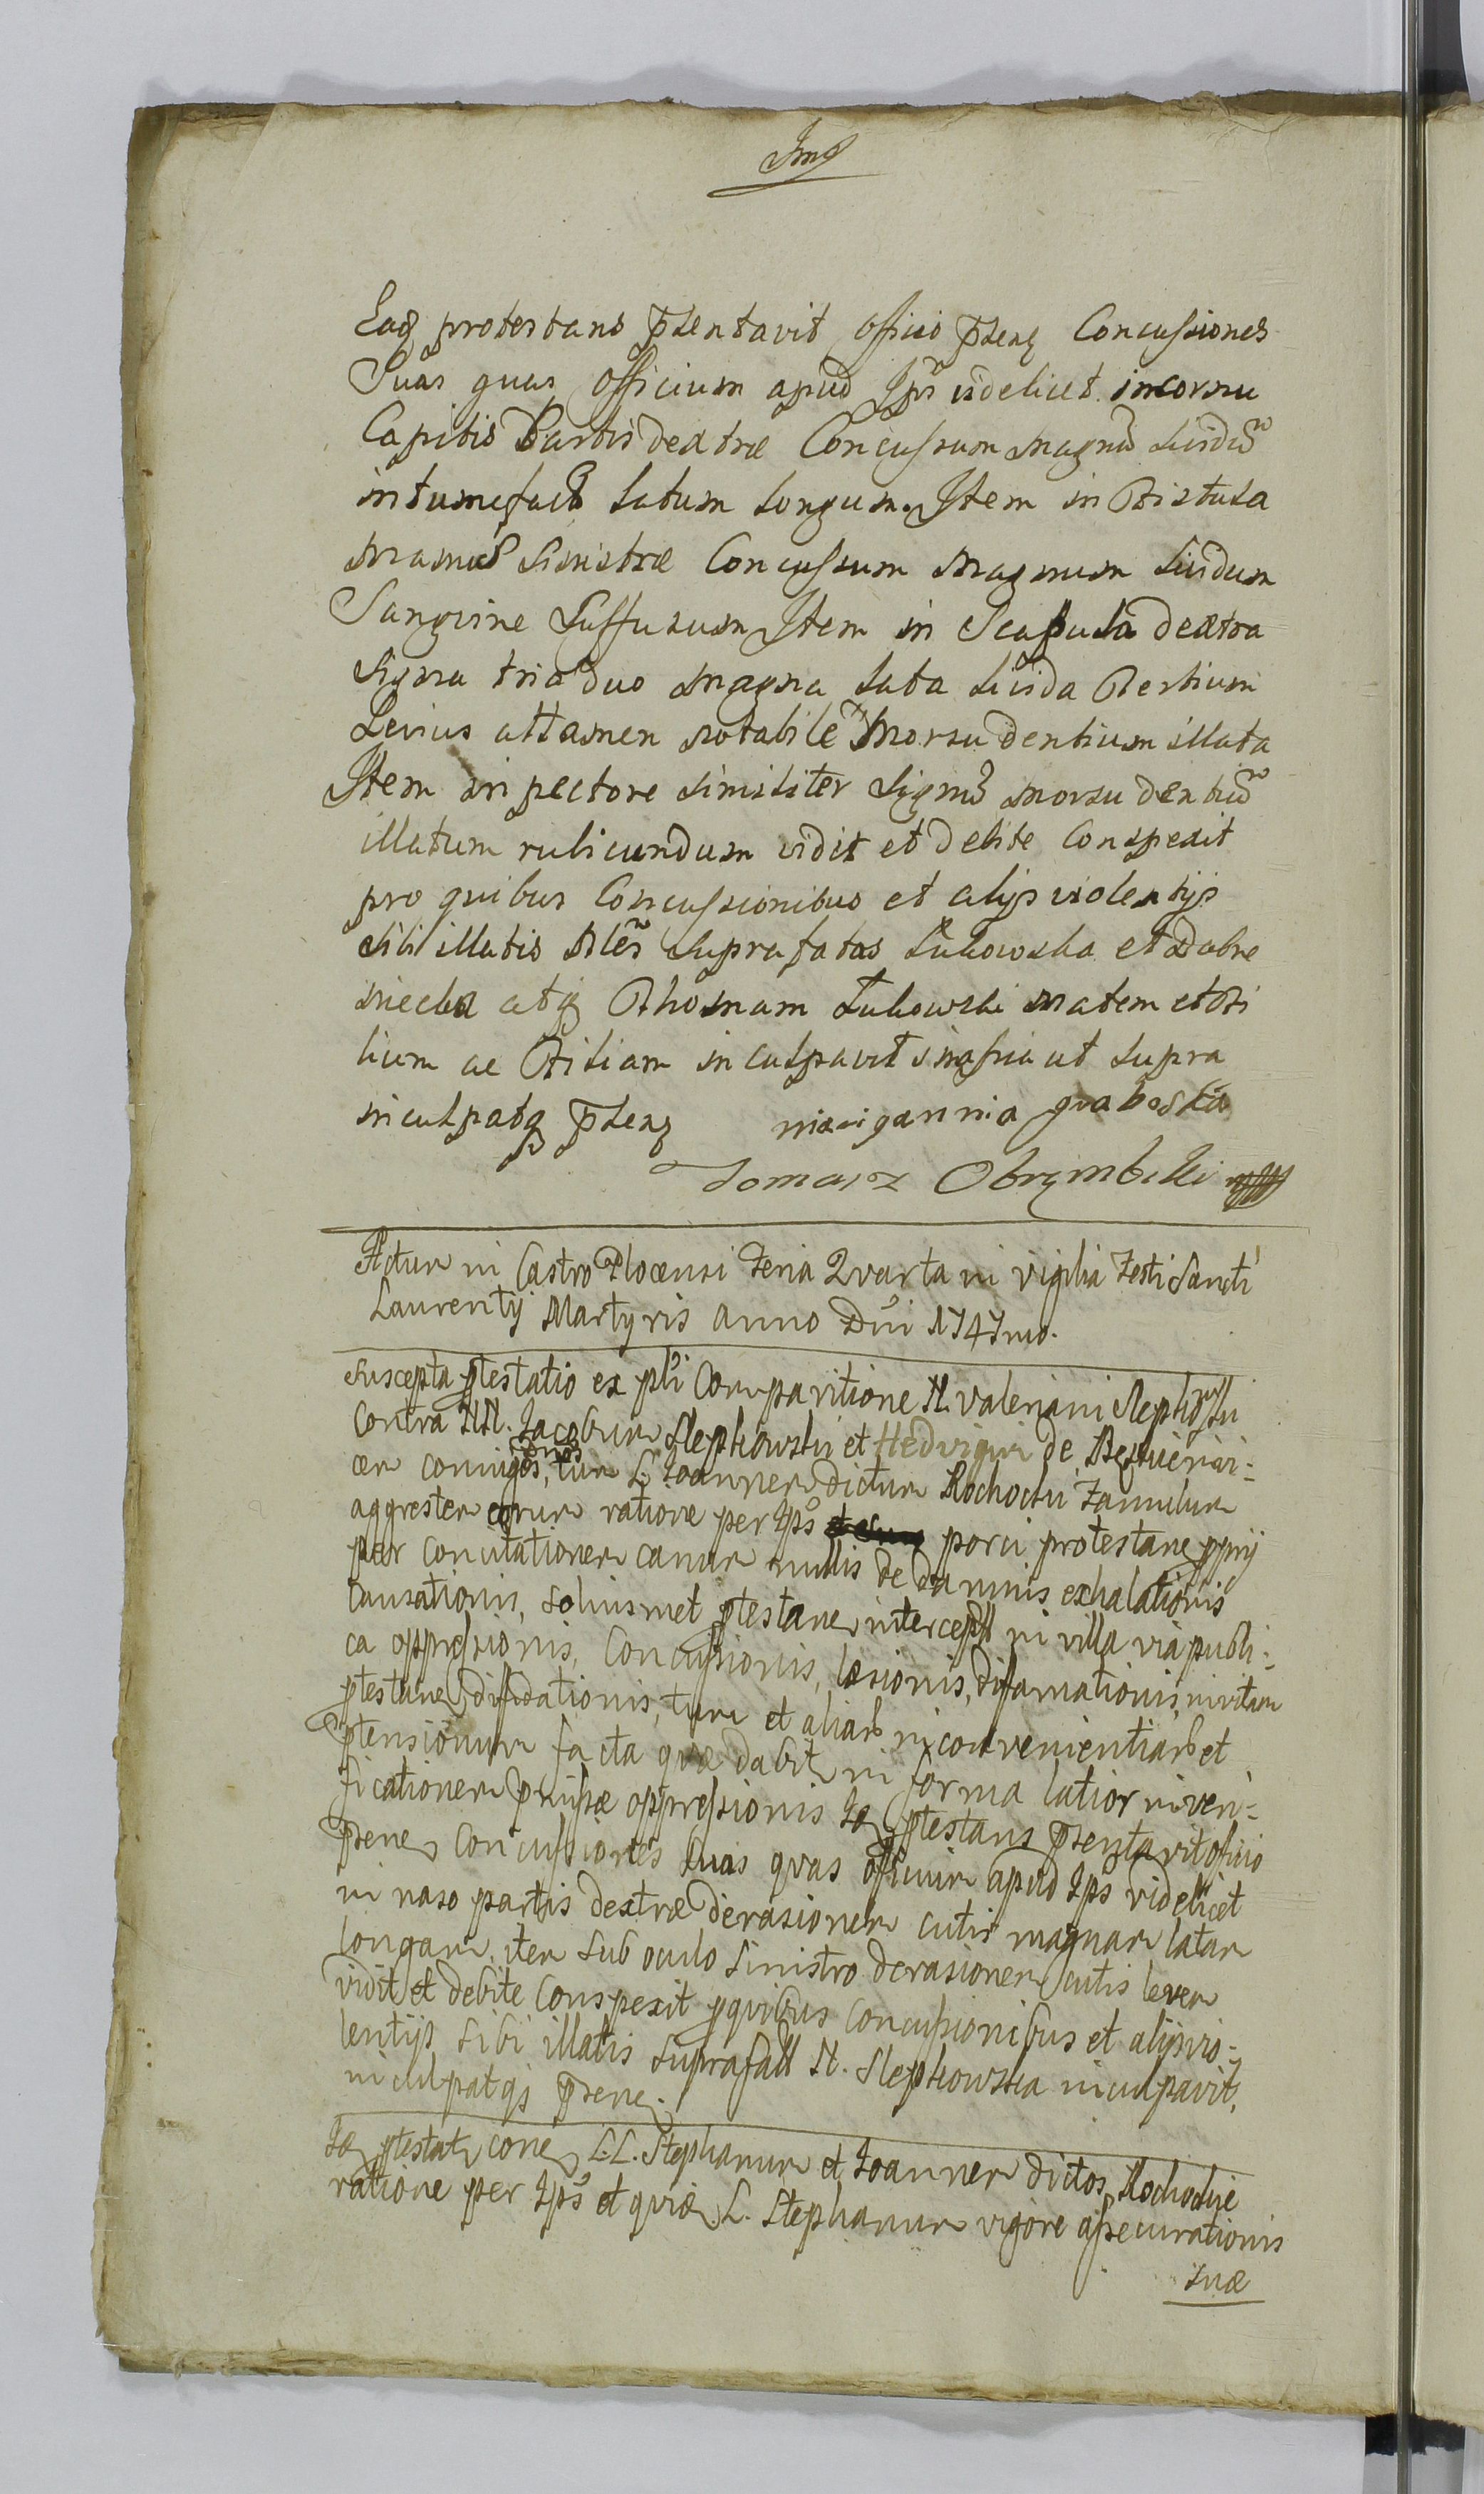 Eadẽ protestans p̃sentavit officio p̃senẽ Concussiones
Suas quas officium apud Ips̃ videlicet in cornu
Capitis Partis dextræ Concussum magnũ lividũ
intumefactũ latum longum. Item in Fistula
manus sinistræ Concussum magnum lividum
Sangvine Suffusum Item in Scapula dextra
signa tria duo magna lata livida Tertium
Levius attamen notabile morsu dentium illata
Item in pectore similiter Signũ morsu dentiũ
illatum rubicundum vidit et debite Conspexit
pro quibus Concussionibus et alijs violentijs
sibi illatis suprafatas Lukowska et Dobrе
miecka atq Thomam Lukowski matem et Fi
lium ac Filiam inculpavit ut supra
inculpatq p̃senẽ
mariganna graboska
Tomasz Obrzmbski mpp
Actum in Castro Plocensi Feria Qvarta in vigilia Festi Sancti
Laurentij Martyris anno Dñi 1747mo.
Suscepta ptestatio ex psli Comparitione N. Valeriani Slepkowski
Contra NN. Jacobum Slepkowski et Hedvigim de
conjuges, tum L. Joannem dictum Rochocki Famulum
aggrestem eorum ratione per Ips̃ porci protestanẽ pprij
per concitationem canum nullis de damnis exhalationis
Causationis, Solius met ptestanẽ intercept in villa via publi-
ca oppressionis, Concussionis, læsionis, diffamationis, in vitam
ptestanẽ diffidationis, tum et aliarũ inconvenientiarũ et
ptensionum facta quæ dabit in forma latiori in veri-
ficationem præmissæ oppressionis Idẽ ptestans p̃sentavit officio
p̃senẽ Concussiones Suas qvas officium apud Ips̃ videlicet
in naso partis dextræ derasionem cutis magnam latam
longam, item sub oculo sinistro derasionem cutis levem
vidit et debite Conspexit pquibus Concussionibus et alijs vio-
lentijs sibi illatis suprafatt N. Slepkowska inculpavit,
inculpatqs p̃senẽ.
Idẽ ptestatẽ conẽ L.L. Stephanum et Joannem dictos Rochockje
ratione per Ips̃ et quia L. Stephanum vigore assecurationis
suæ